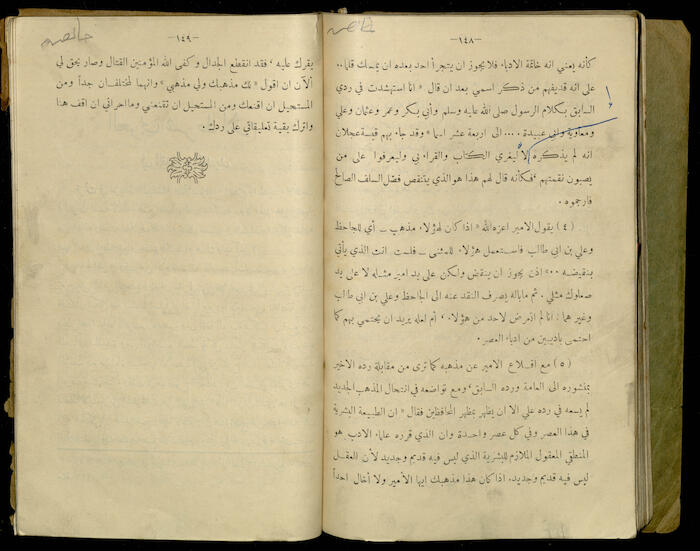 —١٤٨—
كأنه يعني انه خاتمة الادباء فلا يجوز ان يتجرأ احد بعده ان يمسك قلما..
على انه قد يفهم من ذكر اسمي بعد ان قال «انا استشهدت في ردي
السابق بكلام الرسول صلى الله عليه وسلم وأبي بكر وعمر وعثمان وعلي
ومعاوية وأبي عبيدة .... الى اربعة عشر اسما» وقد جاء بهم قيسة عجلان
انه لم يذكره الا ليغري الكتاب والقراء بي وليعرفوا على من
يصبون نقمتهم، فكأنه قال لهم هذا هو الذي يتنقص فضل السلف الصالح
فارجموه.
(٤) يقول الامير اعزه الله «اذا كان لهؤلاء مذهب — أي للجاحظ
وعلي بن ابي طالب فاستعمل هؤلاء للمثنى — فلست انت الذي يأتي
بنقيضه ..» اذن يجوز ان ينقض ولكن على يد امير مثله لا على يد
صعلوك مثلي. ثم ماباله يصرف النقد عنه الى الجاحظ وعلي بن ابي طالب
وغيرهما: انا لم اتعرض لاحد من هؤلاء، أم لعله يريد ان يحتمي بهم كما
احتمى باديبين من ادباء العصر.
(٥) مع اقلاع الامير عن مذهبه كما ترى من مقابلة رده الاخير
بمنشوره الى العامة ورده السابق، ومع تواضعه في انتحال المذهب الجديد
لم يسعه في رده علي الا ان يظهر بمظهر المحافظين فقال «ان الطبيعة البشرية
في هذا العصر وفي كل عصر واحدة وان الذي قرره علماء الادب هو
المنطقي المعقول الملازم للبشرية الذي ليس فيه قديم وجديد لأن العقل
ليس فيه قديم وجديد. اذا كان هذا مذهبك ايها الأمير ولا أخال احداً
—١٤٩—
يقرك عليه، فقد انقطع الجدال وكفى الله المؤمنين القتال وصار يحق لي
ألآن ان اقول «لك مذهبك ولي مذهبي» وانهما لمختلفان جداً ومن
المستحيل ان اقنعك ومن المستحيل ان تقنعني وما احراني ان اقف هنا
واترك بقية تعليقاتي على ردك.